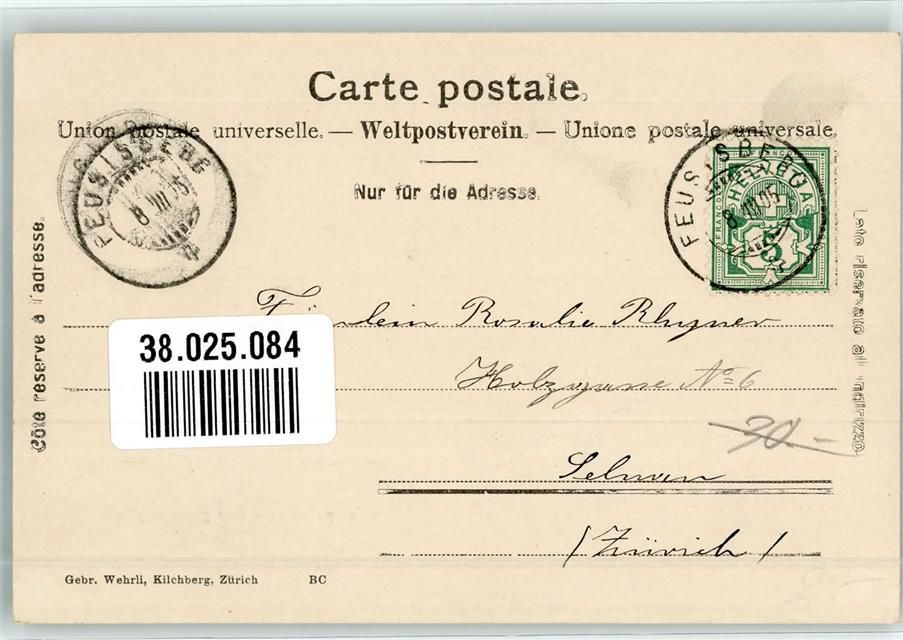 Carte postale.
Union postale universelle. — Weltpostverein. — Unione postale universale.
Nur für die Adresse.
Côté réservé à l'adresse.
Lato riservato all'indirizzo.
FEUSISBERG
8 VIII 05
FEUSISBERG
8 VIII 05
FRANCO
HELVETIA
5
Fräulein Rosalie Rhyner
Holzgasse No 6
38.025.084
30.-
(Zürich)
Gebr. Wehrli, Kilchberg, Zürich BC